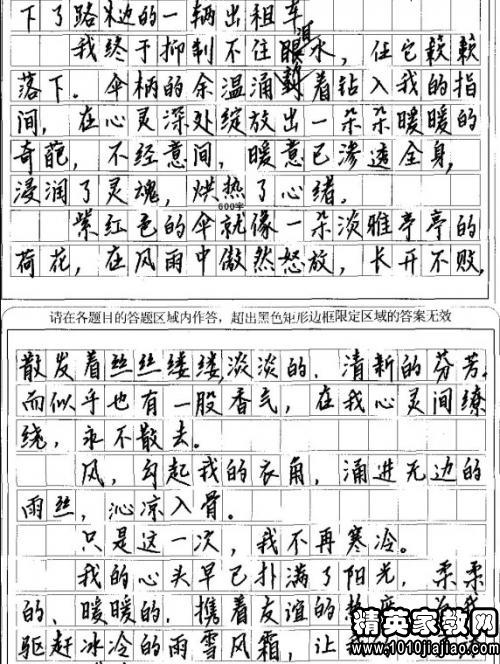 下了路边的一辆出租车
我终于抑制不住眼泪水,任它簌簌
落下。伞柄的余温涌动着钻入我的指
间,在心灵深处绽放出一朵朵暖暖的
奇葩,不经意间,暖意已渗透全身,
浸润了灵魂,烘热了心绪。
600字
紫红色的伞就像一朵淡雅亭亭的
荷花,在风雨中傲然怒放,长开不败,
请在各题目的答题区域内作答,超出黑色矩形边框限定区域的答案无效
散发着丝丝缕缕,淡淡的、清新的芬芳,
而似乎也有一股香气,在我心灵间缭
绕,永不散去。
风,勾起我的衣角,涌进无边的
雨丝,沁凉入骨。
只是这一次,我不再寒冷。
我的心头早已扑满了阳光,柔柔
的、暖暖的,携着友谊的
驱赶冰冷的雨雪风霜,让我
精英家教网
www.1010jiajiao.com